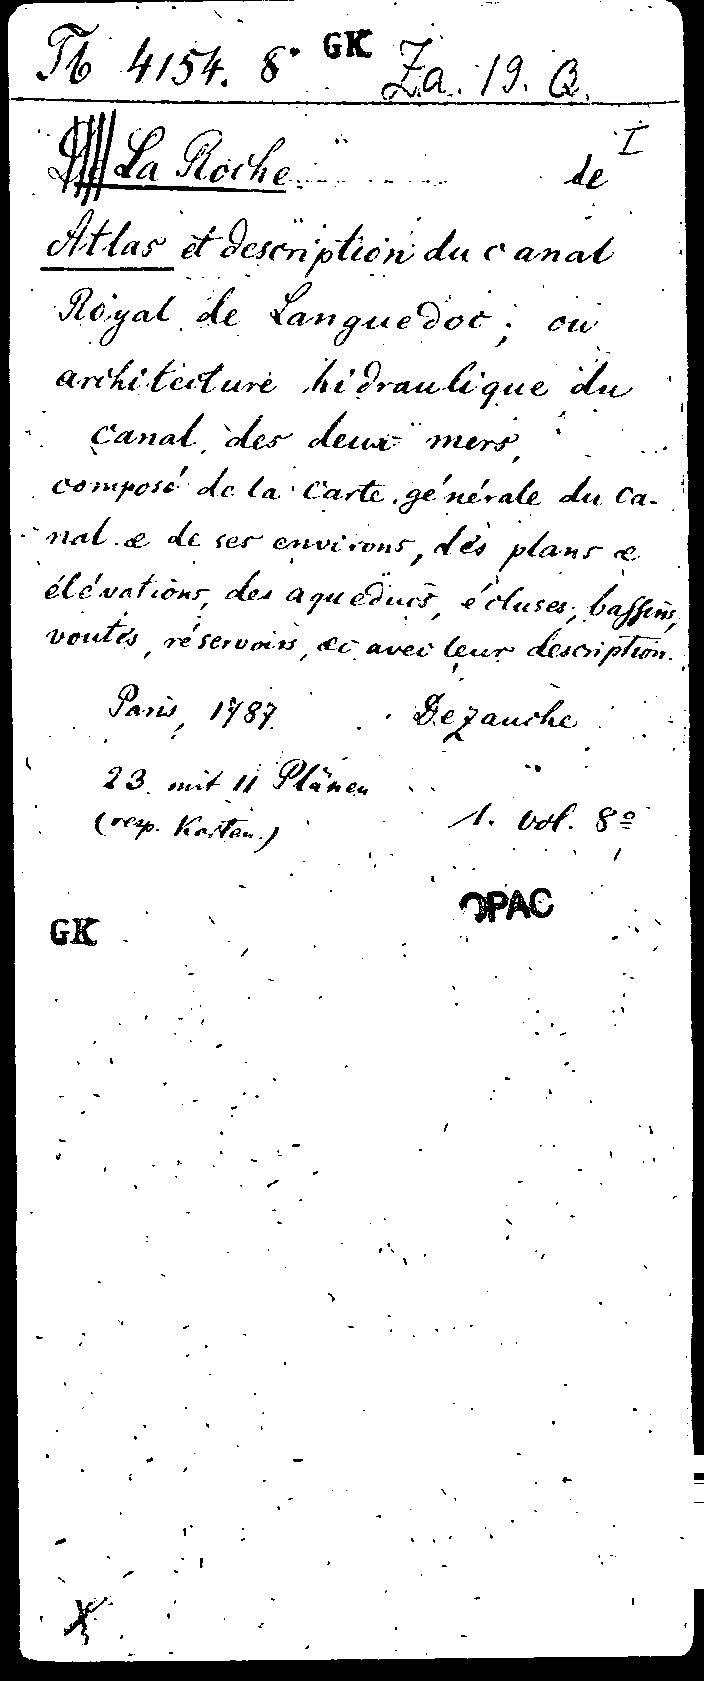 Tb 4154. 8° GK Za. 19. Q.
I
La Roche de
Atlas et description du canal
Royal de Languedoc; ou
architecture hidraulique du
canal des deux mers,
composé de la carte générale du ca-
nal & de ses environs, des plans &
élévations, des aqueducs, écluses, bassins,
voutes, réservoirs, &c avec leur description.
Paris, 1787. Dezauche
23. mit 11 Plänen
(resp. Karten.) 1. vol. 8°
GK OPAC